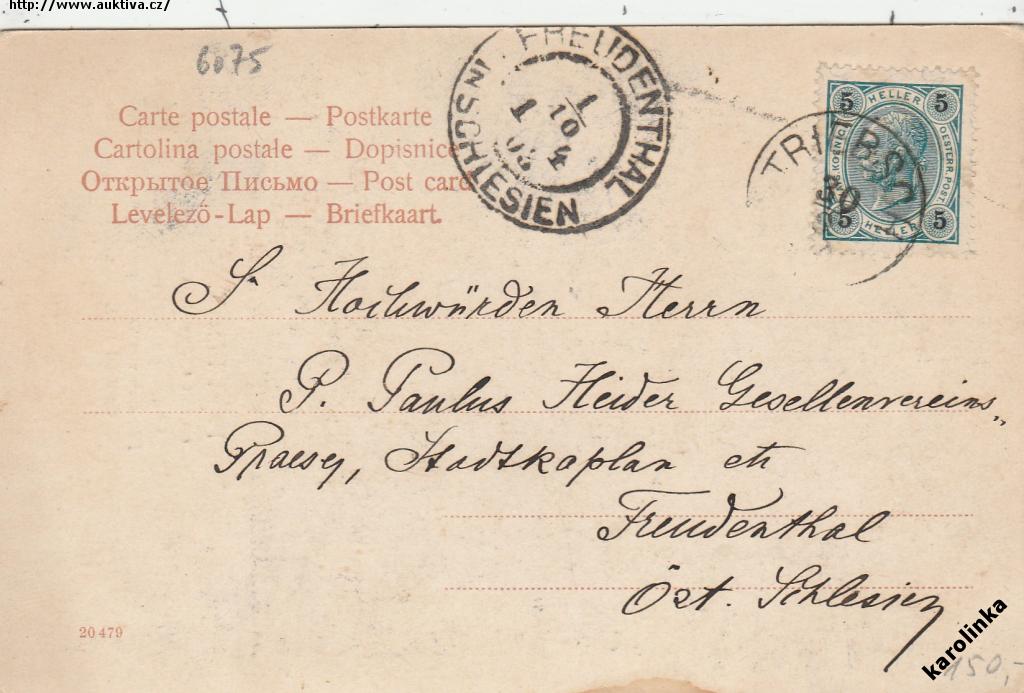 http://www.auktiva.cz/
6075
Carte postale — Postkarte
Cartolina postale — Dopisnice
Открытое Письмо — Post card
Levelező-Lap — Briefkaart.
FREUDENTHAL
IN SCHLESIEN
1
10
4
5 HELLER 5
OESTERR. POST
5 HELLER 5
TRI
30
S. Hochwürden Herrn
P. Paulus Heider Gesellenvereins„
Praeses, Stadtkaplan etc
Freudenthal
Öst. Schlesien
20479
karolinka
150,-